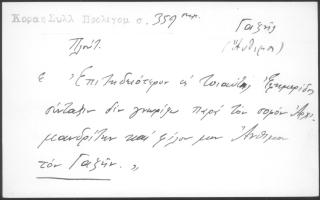 Κοραή Συλλ Προλεγομ σ. 359
Γαζῆς
Πλούτ.
(Ἄνθιμος)
« Ἐπιτηδειότερον εἰς τοιαύτης Ἐφημερίδος
σύνταξιν δὲν γνωρίζω παρὰ τὸν σοφὸν Ἀρχι-
μανδρίτην καὶ φίλον μου Ἄνθιμον
τὸν Γαζῆν. »